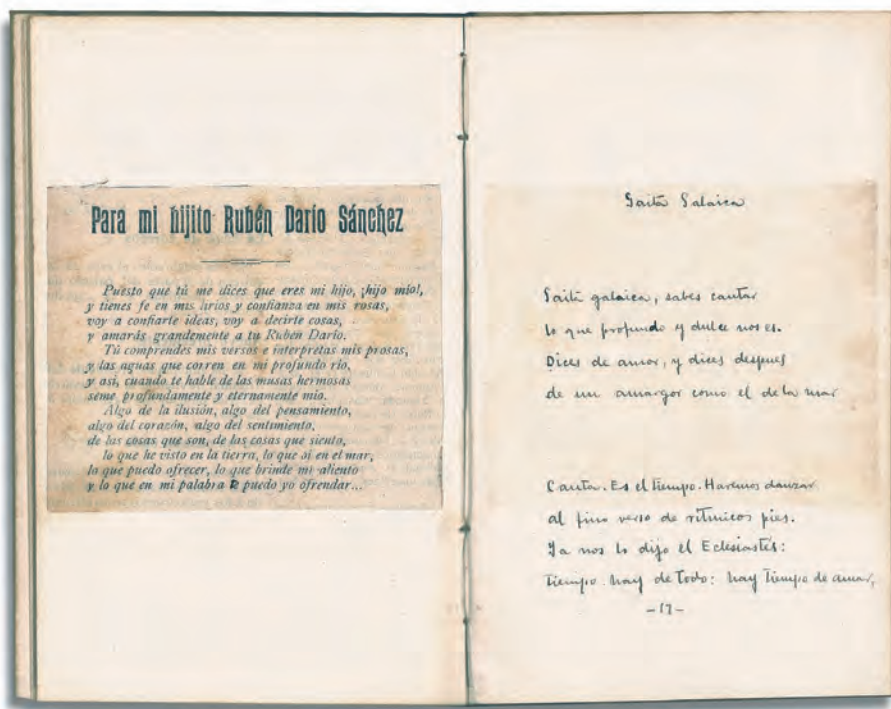 Para mi hijito Rubén Darío Sánchez
Puesto que tú me dices que eres mi hijo, ¡hijo mío!,
y tienes fe en mis lirios y confianza en mis rosas,
voy a confiarte ideas, voy a decirte cosas,
y amarás grandemente a tu Rubén Darío.
Tú comprendes mis versos e interpretas mis prosas,
y las aguas que corren en mi profundo río,
y así, cuando te hable de las musas hermosas
seme profundamente y eternamente mío.
Algo de la ilusión, algo del pensamiento,
algo del corazón, algo del sentimiento,
de las cosas que son, de las cosas que siento,
lo que he visto en la tierra, lo que oí en el mar,
lo que puedo ofrecer, lo que brinde mi aliento
y lo que en mi palabra puedo yo ofrendar...
Gaita Galaica
Gaita galaica, sabes cantar
lo que profundo y dulce nos es.
Dices de amor, y dices despues
de un amargor como el de la mar
Canta. Es el tiempo. Haremos danzar
al fino verso de rítmicos pies.
Ya nos lo dijo el Eclesiastés:
Tiempo hay de Todo: hay Tiempo de amar,
-17-